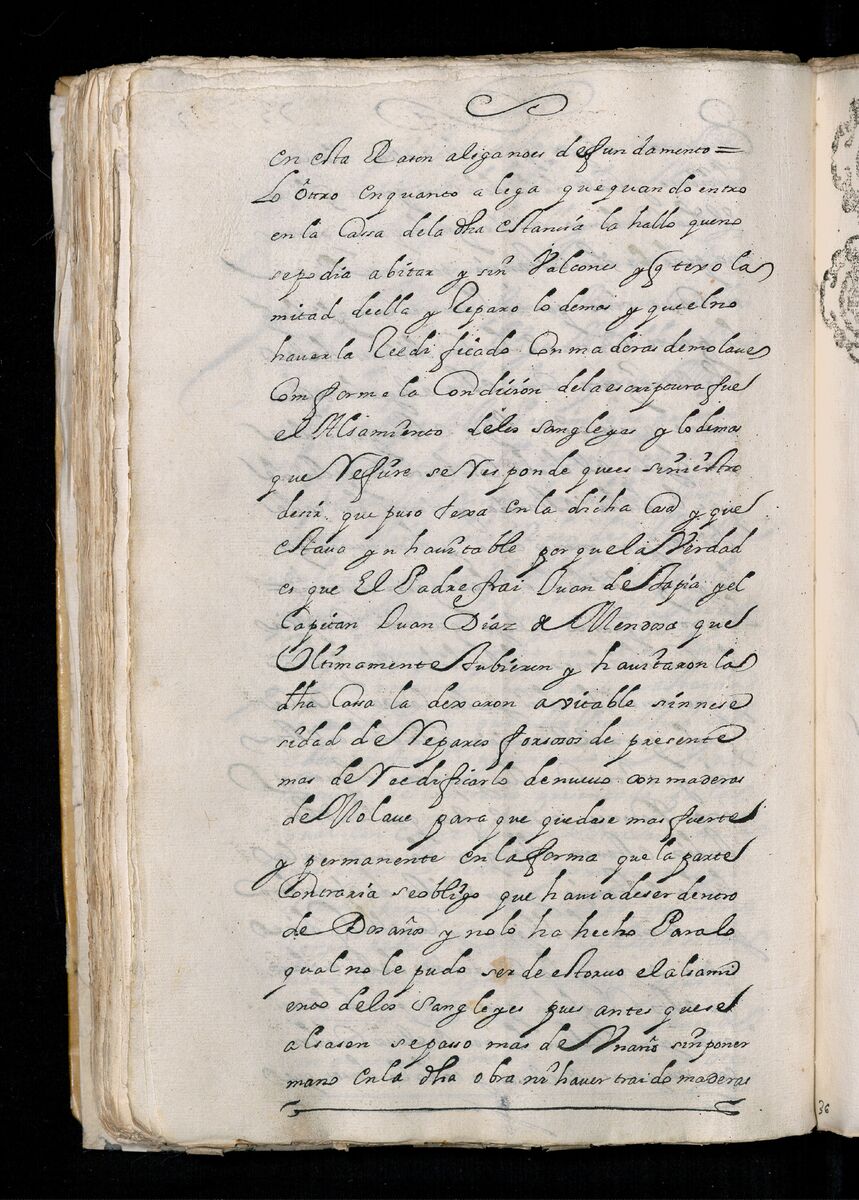 en esta Rason aliganoes defundamento =
Lo otro en quanto a lega que quando entro
en la Cassa dela dha estancia la hallo queno
sepodia abitar y sin Valcones y q texo la
mitad deella y Reparo lo demas y que el no
haver la Reedificado Con maderas demolave
Comforme la Condicion dela escriptura fue
el Alsamiento delos sangleyes y lo demas
que Refiere se Responde que es siniestro
desir que puso texa en la dicha Casa y que
estava yn havitable porque la Verdad
es que El Padre frai Juan de Tapia y el
Capitan Juan Diaz de Mendosa que
Ultimamente tubieron y havitaron la
dha Cassa la dexaron avitable sin nese
sidad de Reparos forsosos de presente
mas de Reedificarlo denuevo con maderas
de Molave para que quedase mas fuerte
y permanente en la forma que la parte
Contraria se obligo que havia deser dentro
de Dos años y nolo ha hecho Para lo
qual no le pudo ser de estorvo el alsami
ento delos Sangleyes pues antes que se
alsasen sepasso mas de Un año sin poner
mano en la dha obra ni haver traido maderas
36